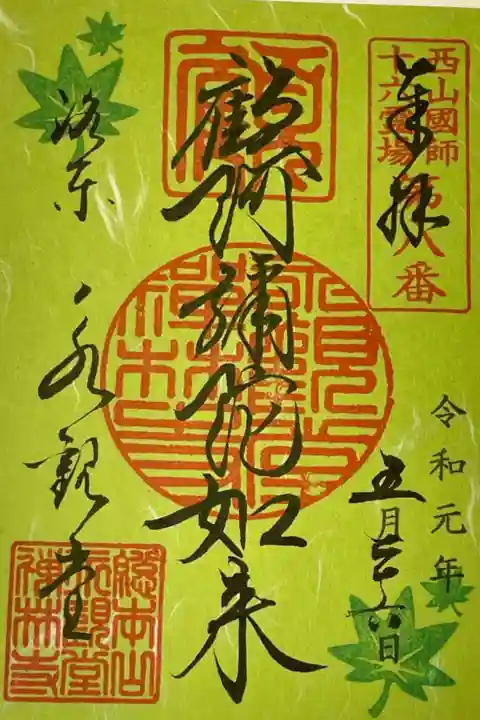 奉拝
西山國師
十六霊場第八番
令和元年
五月二十六日
顧阿彌陀如来
洛東 永観堂
總本山
永観堂
禅林寺